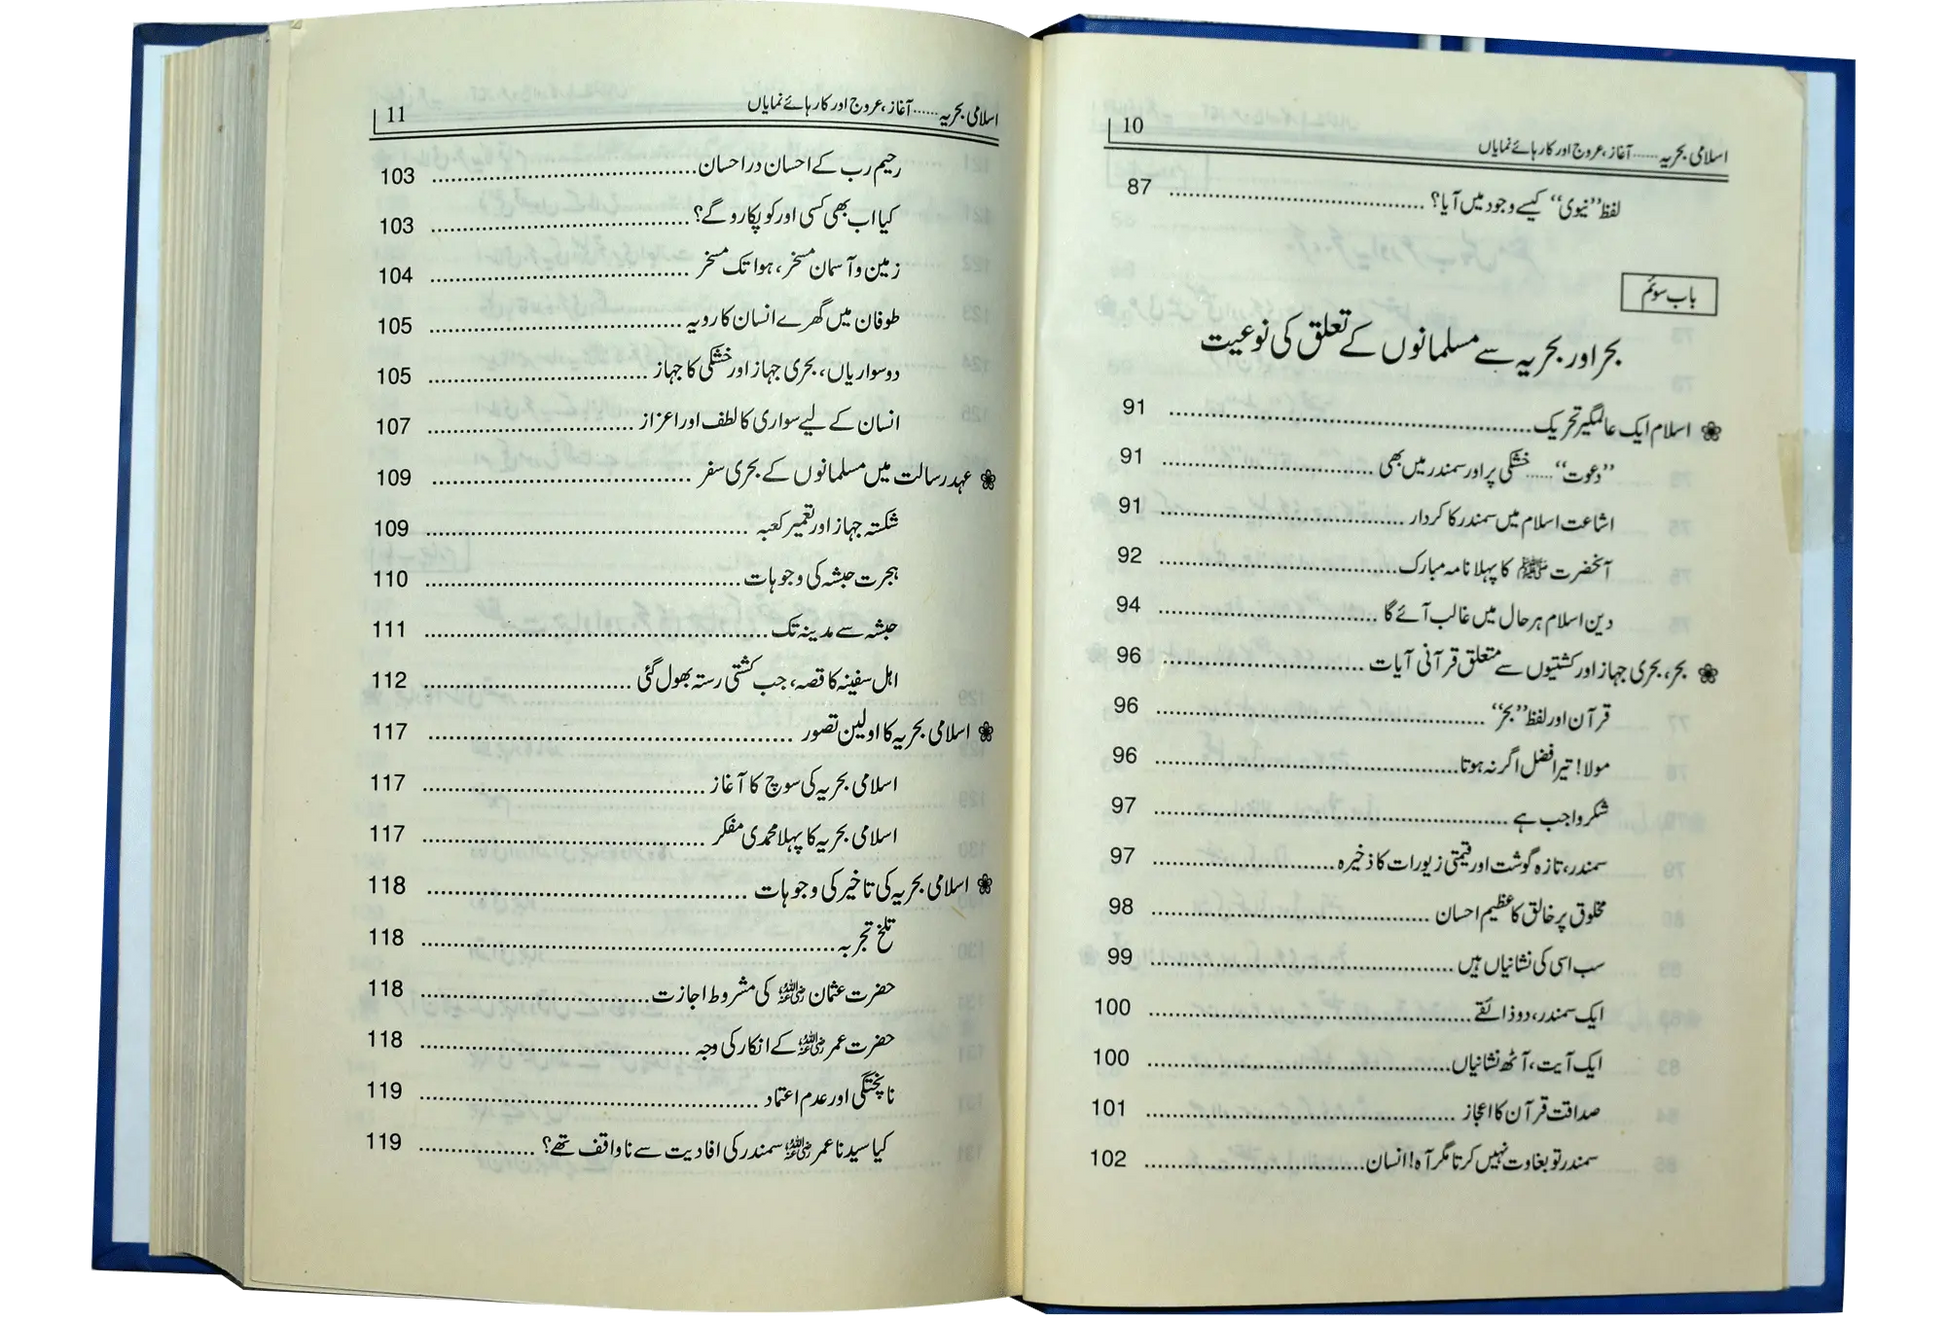 10
اسلامی بحریہ...... آغاز، عروج اور کارہائے نمایاں
لفظ ’’نیوی‘‘ کیسے وجود میں آیا؟ ........................ 87
باب سوئم
بحر اور بحریہ سے مسلمانوں کے تعلق کی نوعیت
❀ اسلام ایک عالمگیر تحریک ........................ 91
’’دعوت‘‘...... خشکی پر اور سمندر میں بھی ........................ 91
اشاعت اسلام میں سمندر کا کردار ........................ 91
آنحضرت ﷺ کا پہلا نامہ مبارک ........................ 92
دین اسلام ہر حال میں غالب آئے گا ........................ 94
❀ بحر، بحری جہاز اور کشتیوں سے متعلق قرآنی آیات ........................ 96
قرآن اور لفظ ’’بحر‘‘ ........................ 96
مولا! تیرا فضل اگر نہ ہوتا ........................ 96
شکر واجب ہے ........................ 97
سمندر، تازہ گوشت اور قیمتی زیورات کا ذخیرہ ........................ 97
مخلوق پر خالق کا عظیم احسان ........................ 98
سب اسی کی نشانیاں ہیں ........................ 99
ایک سمندر، دو ذائقے ........................ 100
ایک آیت، آٹھ نشانیاں ........................ 100
صداقت قرآن کا اعجاز ........................ 101
سمندر تو بغاوت نہیں کرتا مگر آہ! انسان ........................ 102
11
اسلامی بحریہ...... آغاز، عروج اور کارہائے نمایاں
رحیم رب کے احسان در احسان ........................ 103
کیا اب بھی کسی اور کو پکارو گے؟ ........................ 103
زمین و آسمان مسخر، ہوا تک مسخر ........................ 104
طوفان میں گھرے انسان کا رویہ ........................ 105
دو سواریاں، بحری جہاز اور خشکی کا جہاز ........................ 105
انسان کے لیے سواری کا لطف اور اعزاز ........................ 107
❀ عہد رسالت میں مسلمانوں کے بحری سفر ........................ 109
شکستہ جہاز اور تعمیر کعبہ ........................ 109
ہجرت حبشہ کی وجوہات ........................ 110
حبشہ سے مدینہ تک ........................ 111
اہل سفینہ کا قصہ، جب کشتی رستہ بھول گئی ........................ 112
❀ اسلامی بحریہ کا اولین تصور ........................ 117
اسلامی بحریہ کی سوچ کا آغاز ........................ 117
اسلامی بحریہ کا پہلا محمدی مفکر ........................ 117
❀ اسلامی بحریہ کی تاخیر کی وجوہات ........................ 118
تلخ تجربہ ........................ 118
حضرت عثمان رضی اللہ عنہ کی مشروط اجازت ........................ 118
حضرت عمر رضی اللہ عنہ کے انکار کی وجہ ........................ 118
ناپختگی اور عدم اعتماد ........................ 119
کیا سیدنا عمر رضی اللہ عنہ سمندر کی افادیت سے ناواقف تھے؟ ........................ 119